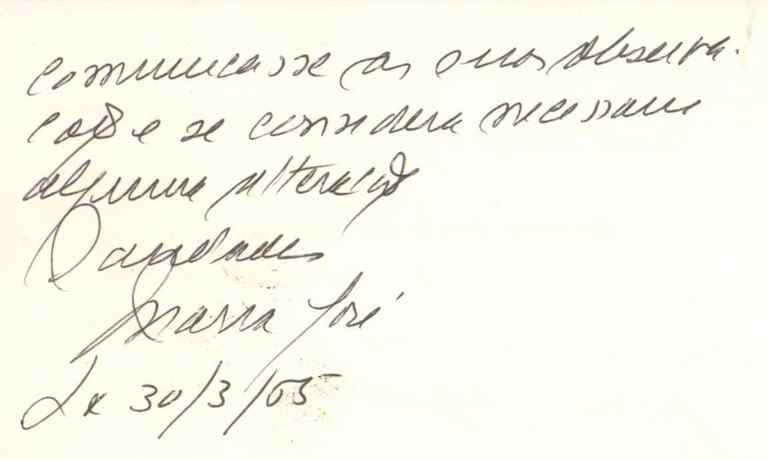 comunicasse as suas observa-
ções e se considera necessária
alguma alteração
Saudades
Maria José
Lx 30/3/05